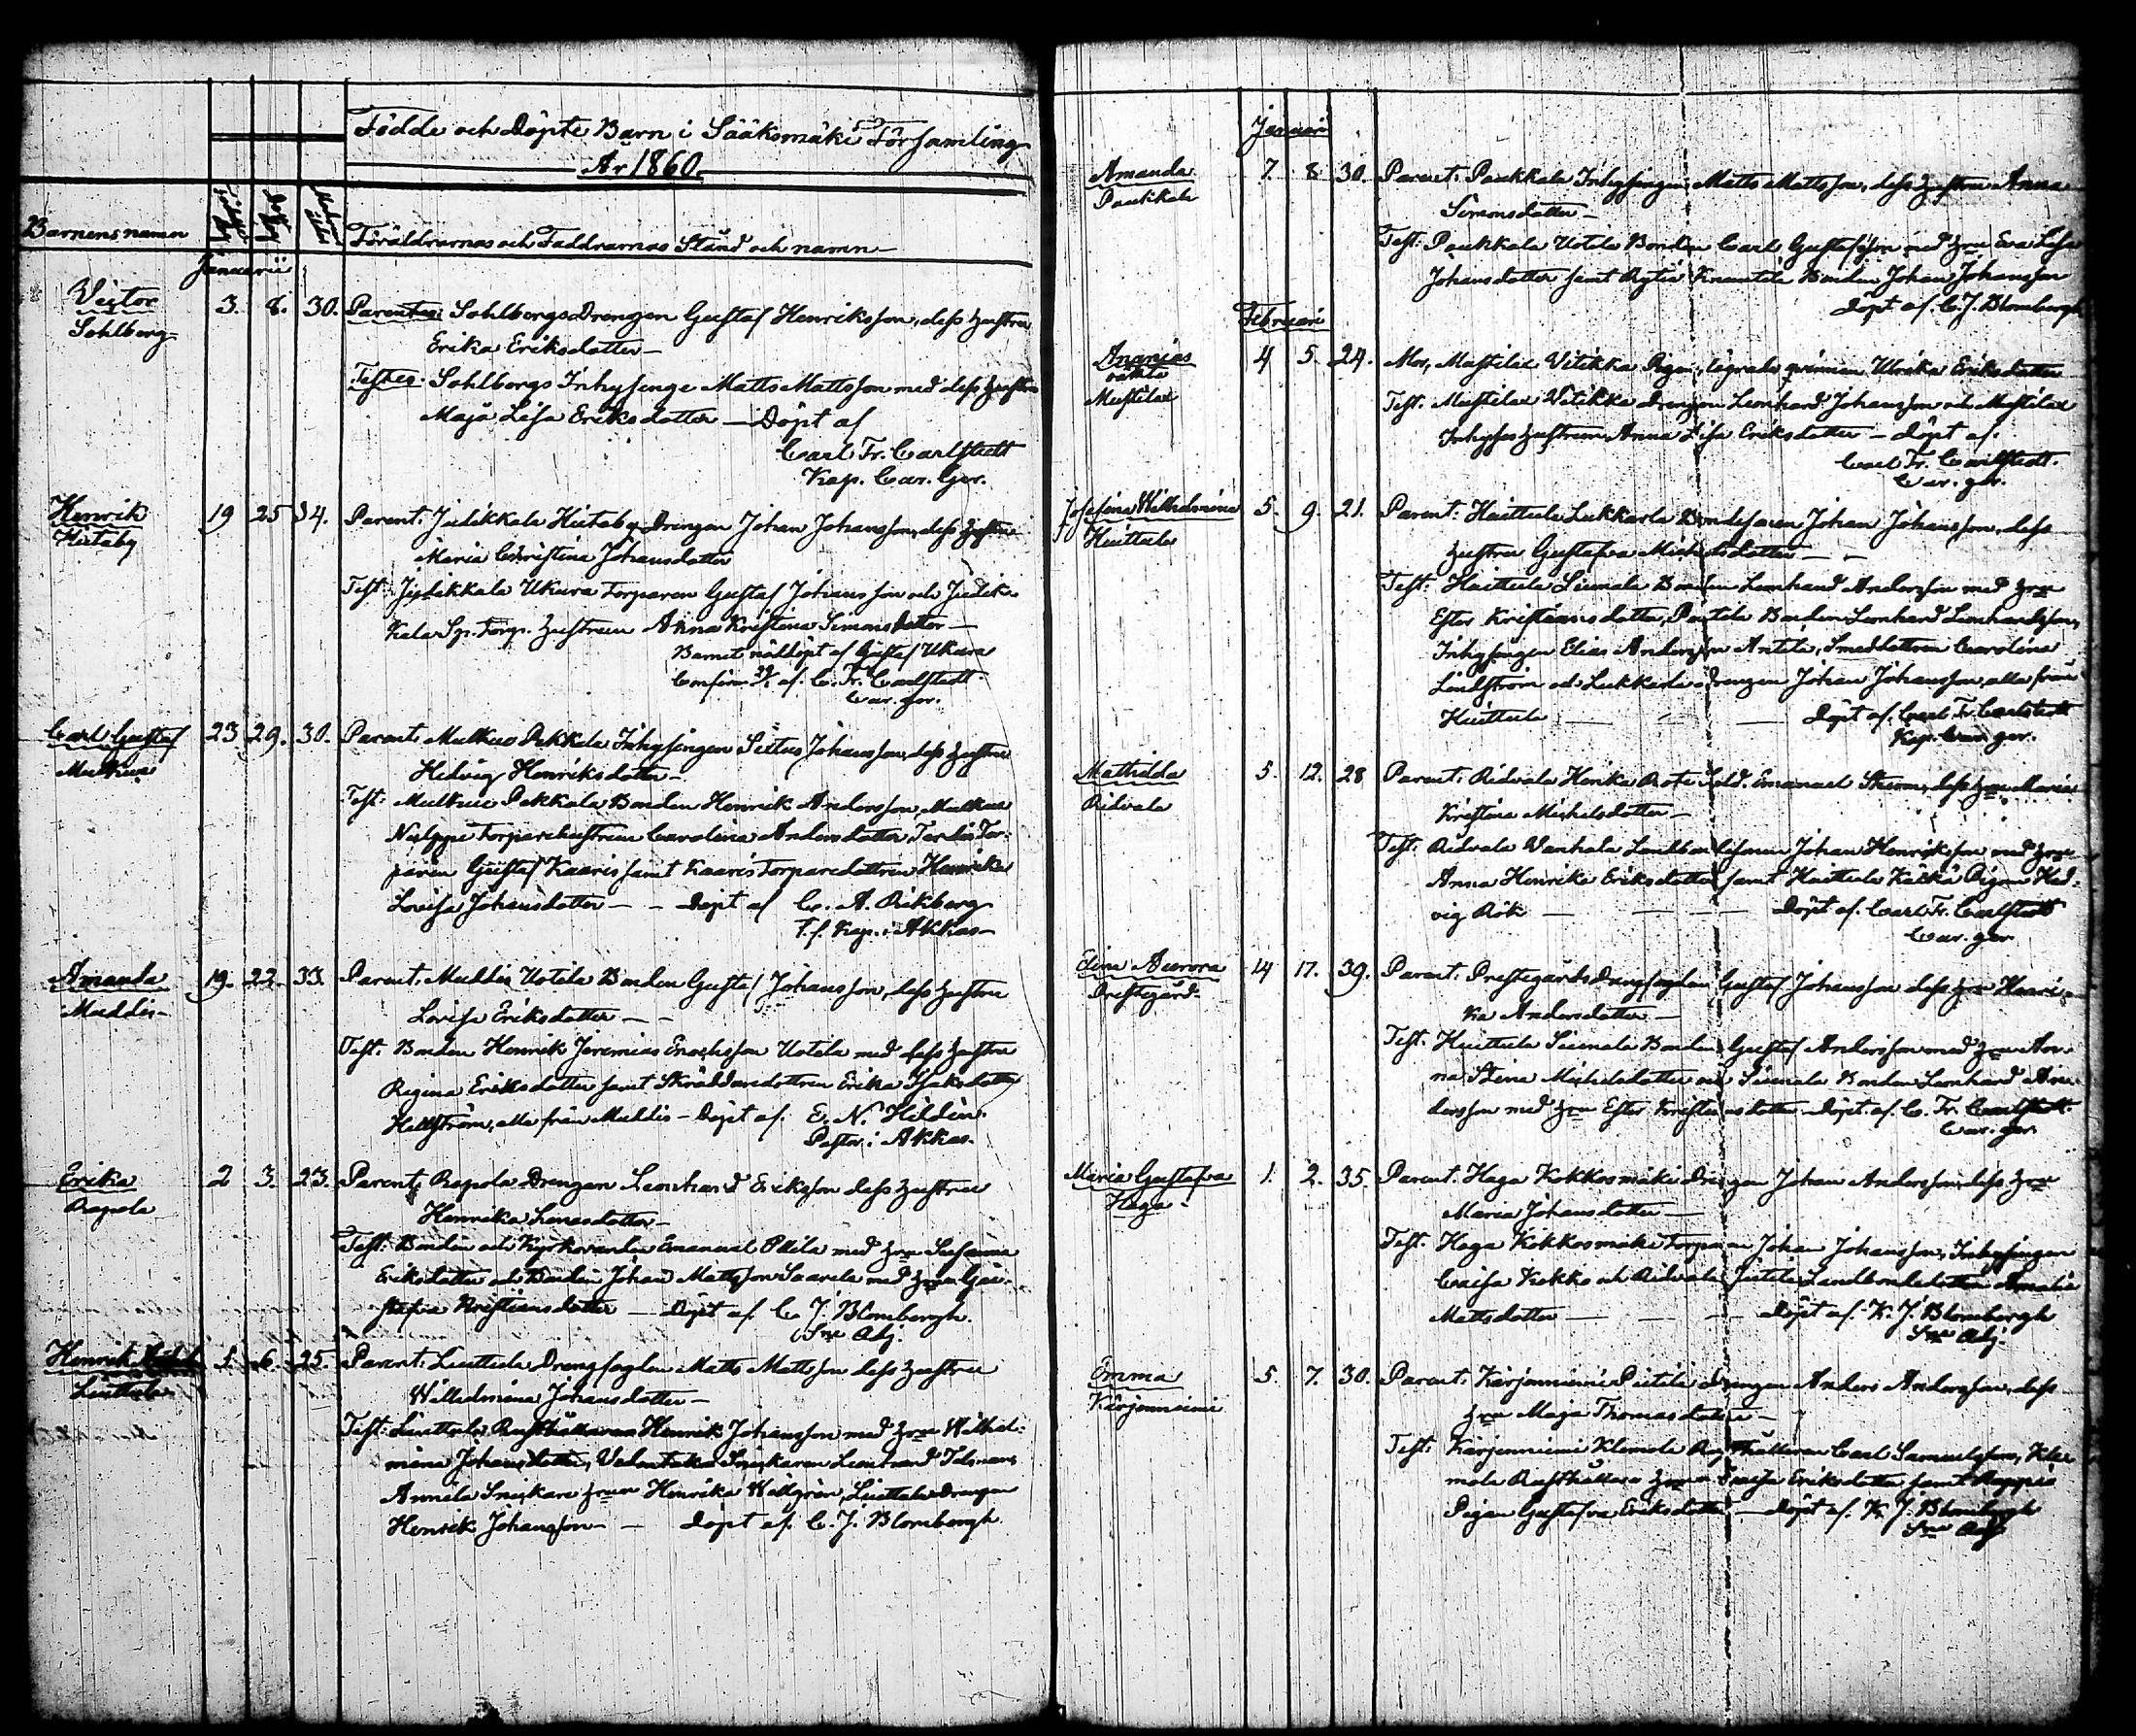 Födde och Döpte Barn i Sääksmäki Församling
År 1860.
Barnens namn
Föräldrarnas och Faddrarnas Stånd och namn
Januarii
Victor 3. 8. 30. Parentes: Sohlbergs Drengen Gustaf Henriksson, dess hustru
Sohlberg Erika Eriksdotter
Testes: Sohlbergs Inhysinge Matts Mattsson med dess hustru
Maja Lisa Eriksdotter — Döpt af
Carl Fr. Carlstedt
Kap. Cur. Ger.
Henrik 19 25 34. Parent: Jutikkala Hietaby Drengen Johan Johansson, dess hustru
Hietaby Maria Christina Johansdotter
Test: Jutikkala Ukura Torparen Gustaf Johansson och Jutik-
kala Torp. hustrun Anna Kristina Simonsdotter —
Barnet nöddöpt af Gustaf Ukura
Confirm. af C. Fr. Carlstedt
Cur. ger.
Carl Gustaf 23 29. 30. Parent: Mulkus Pekkala Inhysingen Sixtus Johansson, dess hustru
Hedvig Henriksdotter —
Test: Pekkala Bonden Henrik Andersson,
Torparehustrun Carolina Andersdotter, Tor-
paren Gustaf Kaaris samt Kaaris Torparedottren Henrika
Lovisa Johansdotter — Döpt af C. A. Rikberg
T.f. Kap. i Akkas
Amanda 19. 22. 33. Parent: Muddis Uotila Bonden Gustaf Johansson, dess hustru
Muddis Lovisa Eriksdotter —
Test: Bonden Henrik Jeremias Enochsson Uotila med dess hustru
Regina Eriksdotter samt Skräddaredottren Erika Isaksdotter
Hellström, alla från Muddis — Döpt af E. N. Hildén.
Pastor i Akkas.
Erika 2 3. 23. Parent: Rapola Drengen Leonhard Eriksson dess hustru
Rapola Henrika
Test: Bonden och Kyrkovärden Emanuel Ollila med hru Susanna
Eriksdotter och Bonden Johan Mattsson Saarela med hrun Gus-
tafva Kristiansdotter — Döpt af C J Blombergh.
Sne Adj.
Henrik 5. 6. 25. Parent: Liuttula Drengfogden Matts Mattsson dess hustru
Liuttula Wilhelmina Johansdotter —
Test: Liuttula Rusthållaren Henrik Johansson med hru Wilhel-
mina Johansdotter, Snickaren Leonhard
Annila Snickare hrun Henrika Liuttula Drengen
Henrik Johansson — Döpt af C. J. Blombergh
Januari
Amanda 7. 8 30. Parent: Paukkala Inhysingen Matts Mattsson, dess hustru Anna
Paukkala Simonsdotter —
Test: Paukkala Uotila Bonden Carl Gustafsson med hru Eva Lisa
Johansdotter samt Bonden Johan Johansson
Döpt af C. J. Blombergh
Februari
Ananias 4 5. 24. Mor, Mustilax Vitikka Pigan, Ulrika Eriksdotter
oäkta
Mustilax Test. Mustilax Vitikka Drengen Leonhard Johansson och Mustilax
Inhyses hustrun Anna Lisa Eriksdotter — Döpt af.
Carl Fr. Carlstedt.
Cur. ger.
Josefina Wilhelmina 5. 9. 21. Parent: Huittula Lukkarla Bondesonen Johan Johansson, dess
Huittula hustru Gustafva Michelsdotter —
Test: Huittula Bonden Leonhard Andersson med hru
Ester Kristiansdotter, Bonden Leonhard Leonhardsson,
Inhysingen Elias Andersson Anttila, Smeddottren Carolina
Lindström och Lukkarla drengen Johan Johansson, alla från
Huittula — Döpt af Carl Fr. Carlstedt
Kap. Cur. ger.
Mathilda 5. 12. 28 Parent: Ridvala Rote Sold. Emanuel dess hru Maria
Ridvala Kristina Michelsdotter —
Test: Ridvala Vanhala Johan Henriksson med hru
Anna Henrika Eriksdotter samt Huittula Pigan Hed-
vig — Döpt af. Carl Fr. Carlstedt
Cur. ger
Elina Aurora 14 17. 39. Parent: Prestegårds Drengfogden Gustaf Johansson dess hru Henri-
Prestegård. ka Andersdotter —
Test: Huittula Bonden Gustaf Andersson med hru An-
na Stina Michelsdotter och Bonden Leonhard An-
dersson med hru Ester Kristiansdotter — Döpt af C. Fr. Carlstedt.
Cur. ger.
Maria Gustafva 1. 2. 35. Parent. Haga Kokkosmäki Drengen Johan Andersson, dess hru
Haga. Maria Johansdotter —
Test. Haga Kokkosmäki Torparen Johan Johansson, Inhysingen
Kokko och Ridvala Amalia
Mattsdotter — Döpt af K. J. Blombergh
Sne Adj.
Emma 5. 7. 30. Parent: Kärjenniemi drengen Anders Andersson, dess
Kärjenniemi hru Maja Thomasdotter —
Test. Kärjenniemi Klemola Rusthållaren Carl Samuelsson, Kle-
mola Eriksdotter samt
Pigan Gustafva Eriksdotter — Döpt af K J. Blombergh
Sne Adj